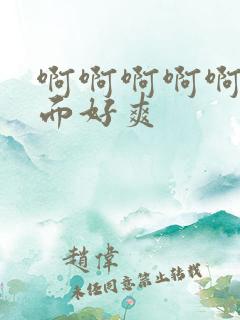 啊啊啊啊啊
而好爽
趙偉
未经同意禁止转载